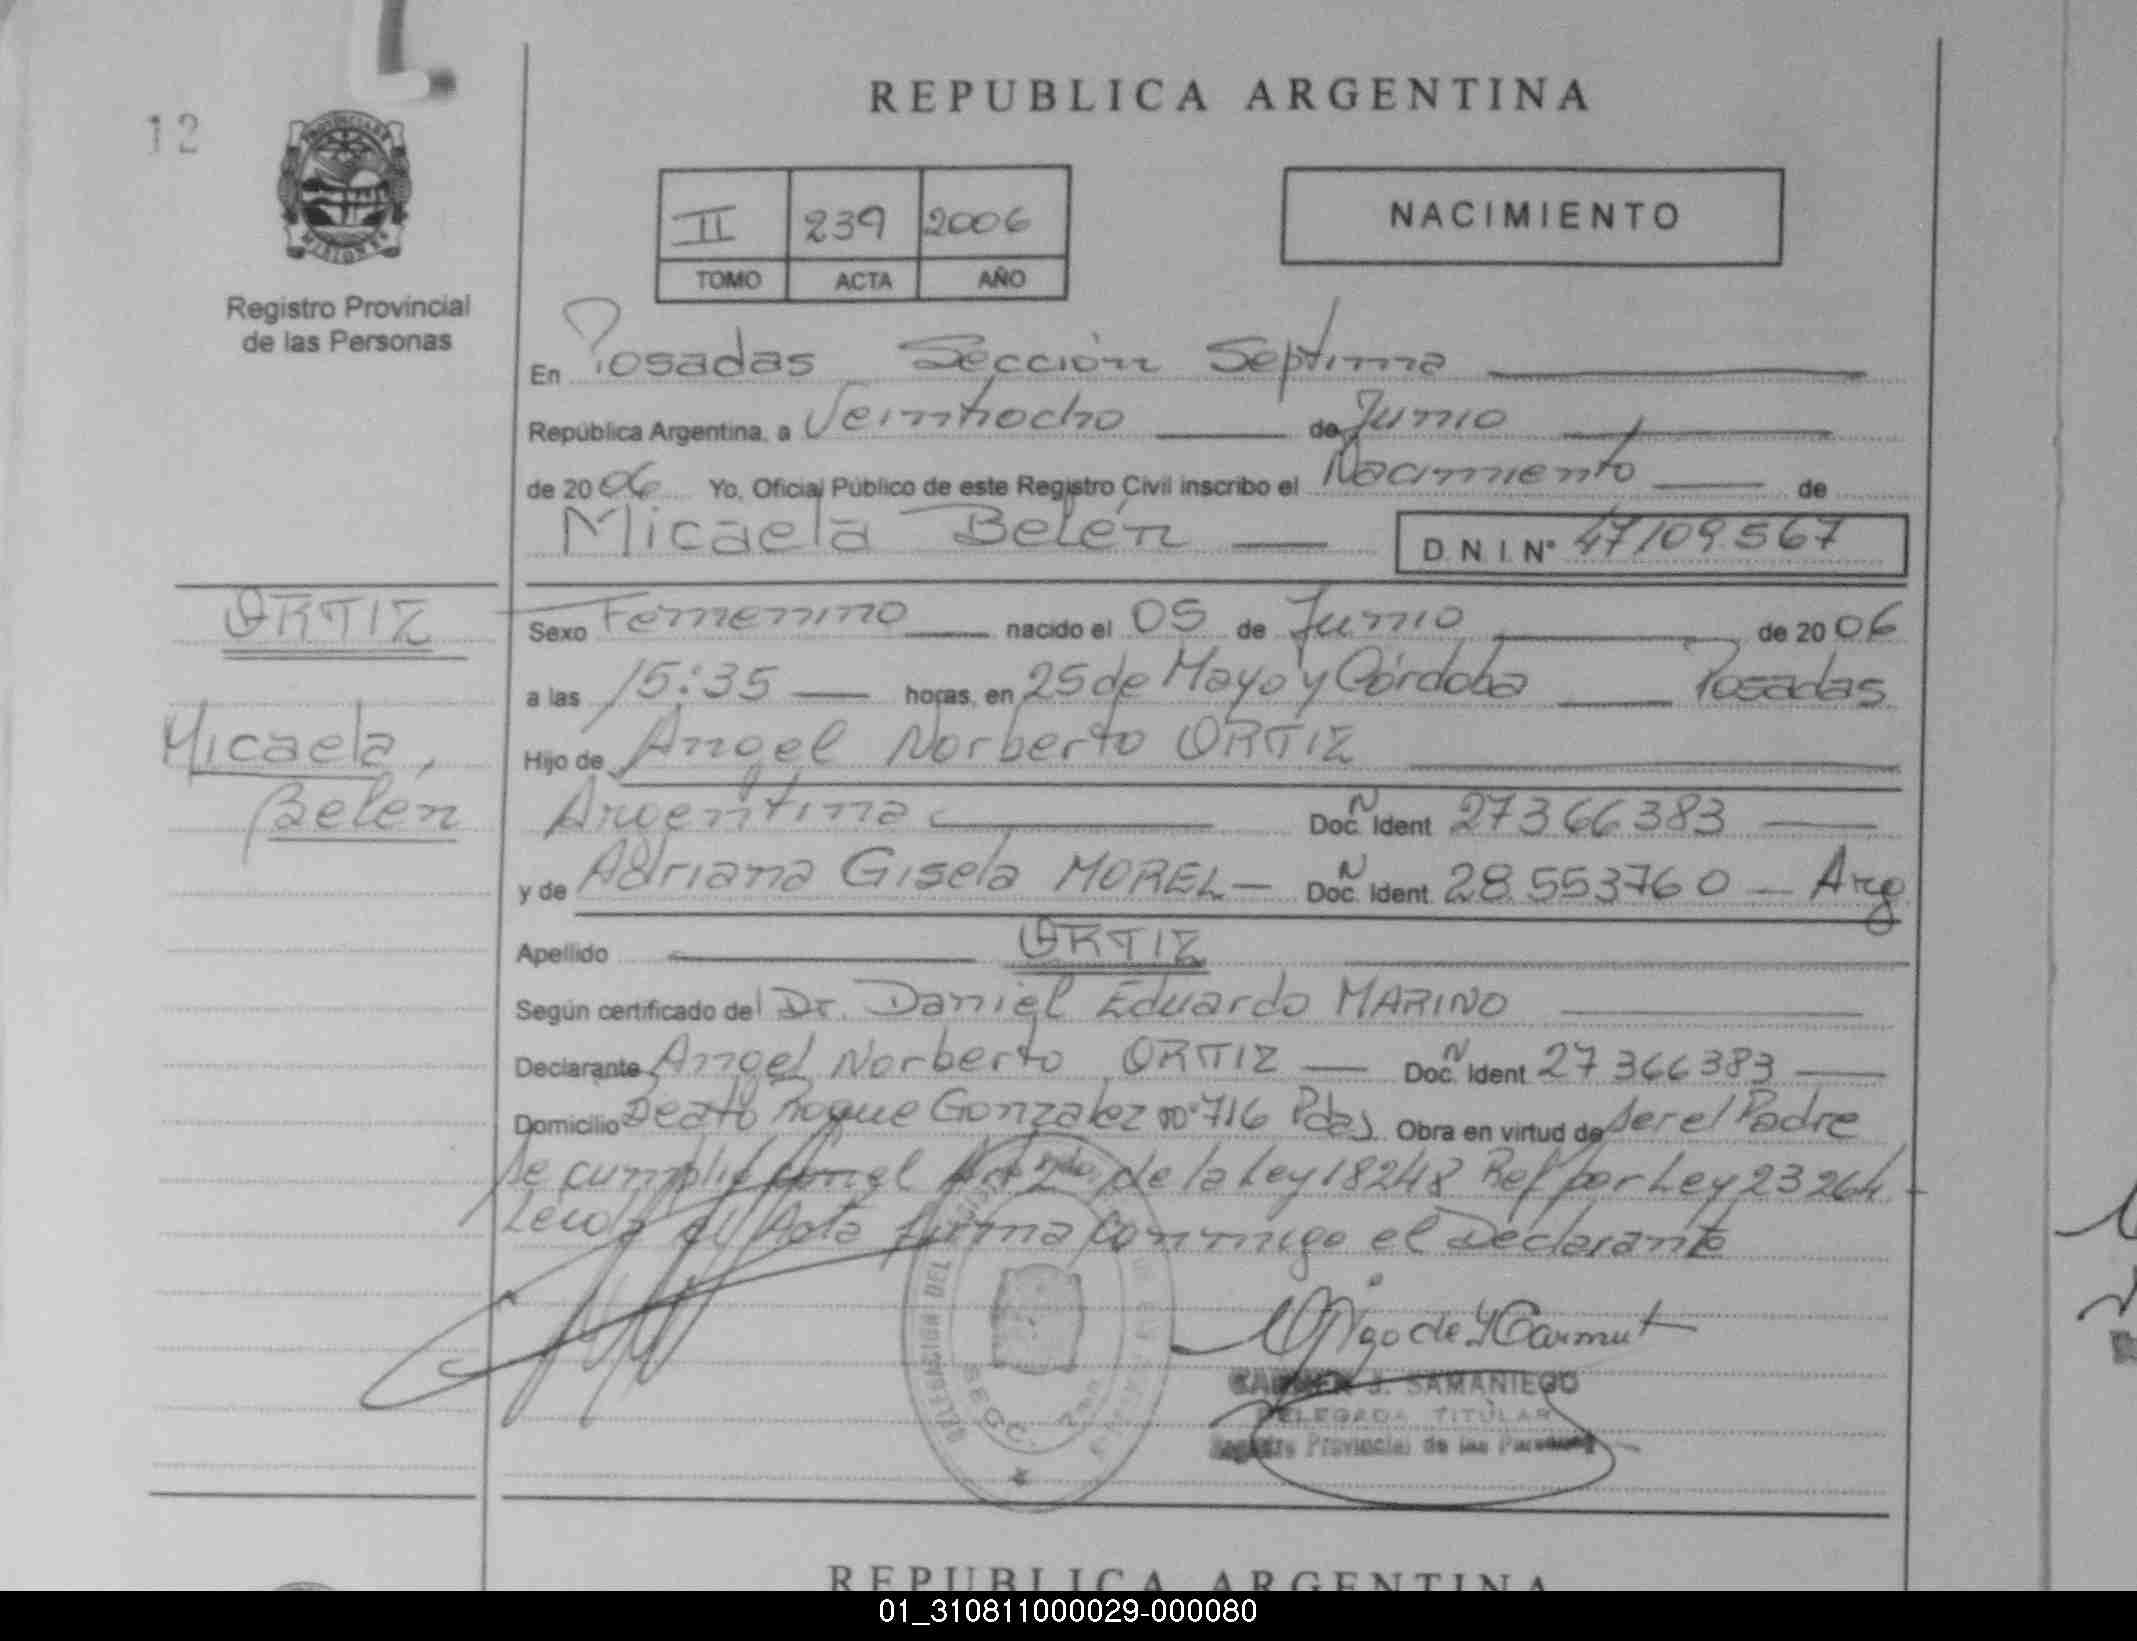 12
REPUBLICA ARGENTINA
II 239 2006
TOMO ACTA AÑO
NACIMIENTO
Registro Provincial
de las Personas
En Posadas Sección Septima
República Argentina, a Veintiocho de Junio
de 2006 Yo, Oficial Público de este Registro Civil inscribo el Nacimiento de
Micaela Belén D.N.I.N° 47109567
ORTIZ
Micaela,
Belén
Sexo Femenino nacido el 05 de Junio de 2006
a las 15:35 horas, en 25 de Mayo y Córdoba Posadas
Hijo de Angel Norberto ORTIZ
Argentina Doc. Ident 27366383
y de Adriana Gisela MOREL Doc. Ident. 28.553760 Arg
Apellido ORTIZ
Según certificado del Dr. Daniel Eduardo MARINO
Declarante Angel Norberto ORTIZ Doc. Ident 27 366383
Domicilio Beato Roque Gonzalez n° 716 Pdas. Obra en virtud de ser el Padre
Se cumplió con el Art 2do. de la Ley 18248 Ref por Ley 23264
Leida el Acta firma conmigo el Declarante
DELEGACION DEL
SECC.
CARMEN J. SAMANIEGO
DELEGADA TITULAR
Registro Provincial de las Personas
REPUBLICA ARGENTINA
01_310811000029-000080